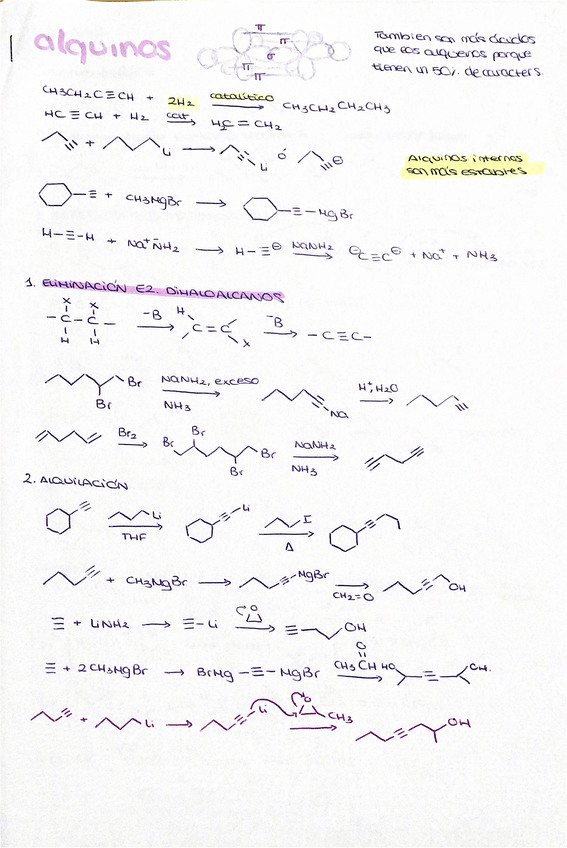 alquinos
π
π
σ
π
π
También son más ácidos
que los alquenos porque
tienen un 50% de caracter s
CH3CH2C≡CH + 2H2 catalítico CH3CH2CH2CH3
HC≡CH + H2 cat HC=CH2
+ Li → Li ó ⊖
Alquinos internos
son más estables
≡ + CH3MgBr → ≡-MgBr
H-≡-H + Na⁺N̈H2 → H-≡⊖ NaNH2 → ⊖C≡C⊖ + Na⁺ + NH3
1. ELIMINACIÓN E2. DIHALOALCANOS
X X
-C-C- -B → H C=C X -B → -C≡C-
H H
Br Br NaNH2, exceso NH3 → Na H⁺, H2O →
Br2 → Br Br Br Br NaNH2 NH3 →
2. ALQUILACIÓN
Li THF → Li I Δ →
+ CH3MgBr → MgBr CH2=O → OH
≡ + LiNH2 → ≡-Li O → ≡ OH
≡ + 2CH3MgBr → BrMg-≡-MgBr CH3CH O → HO ≡ OH
+ Li → Li O CH3 → OH